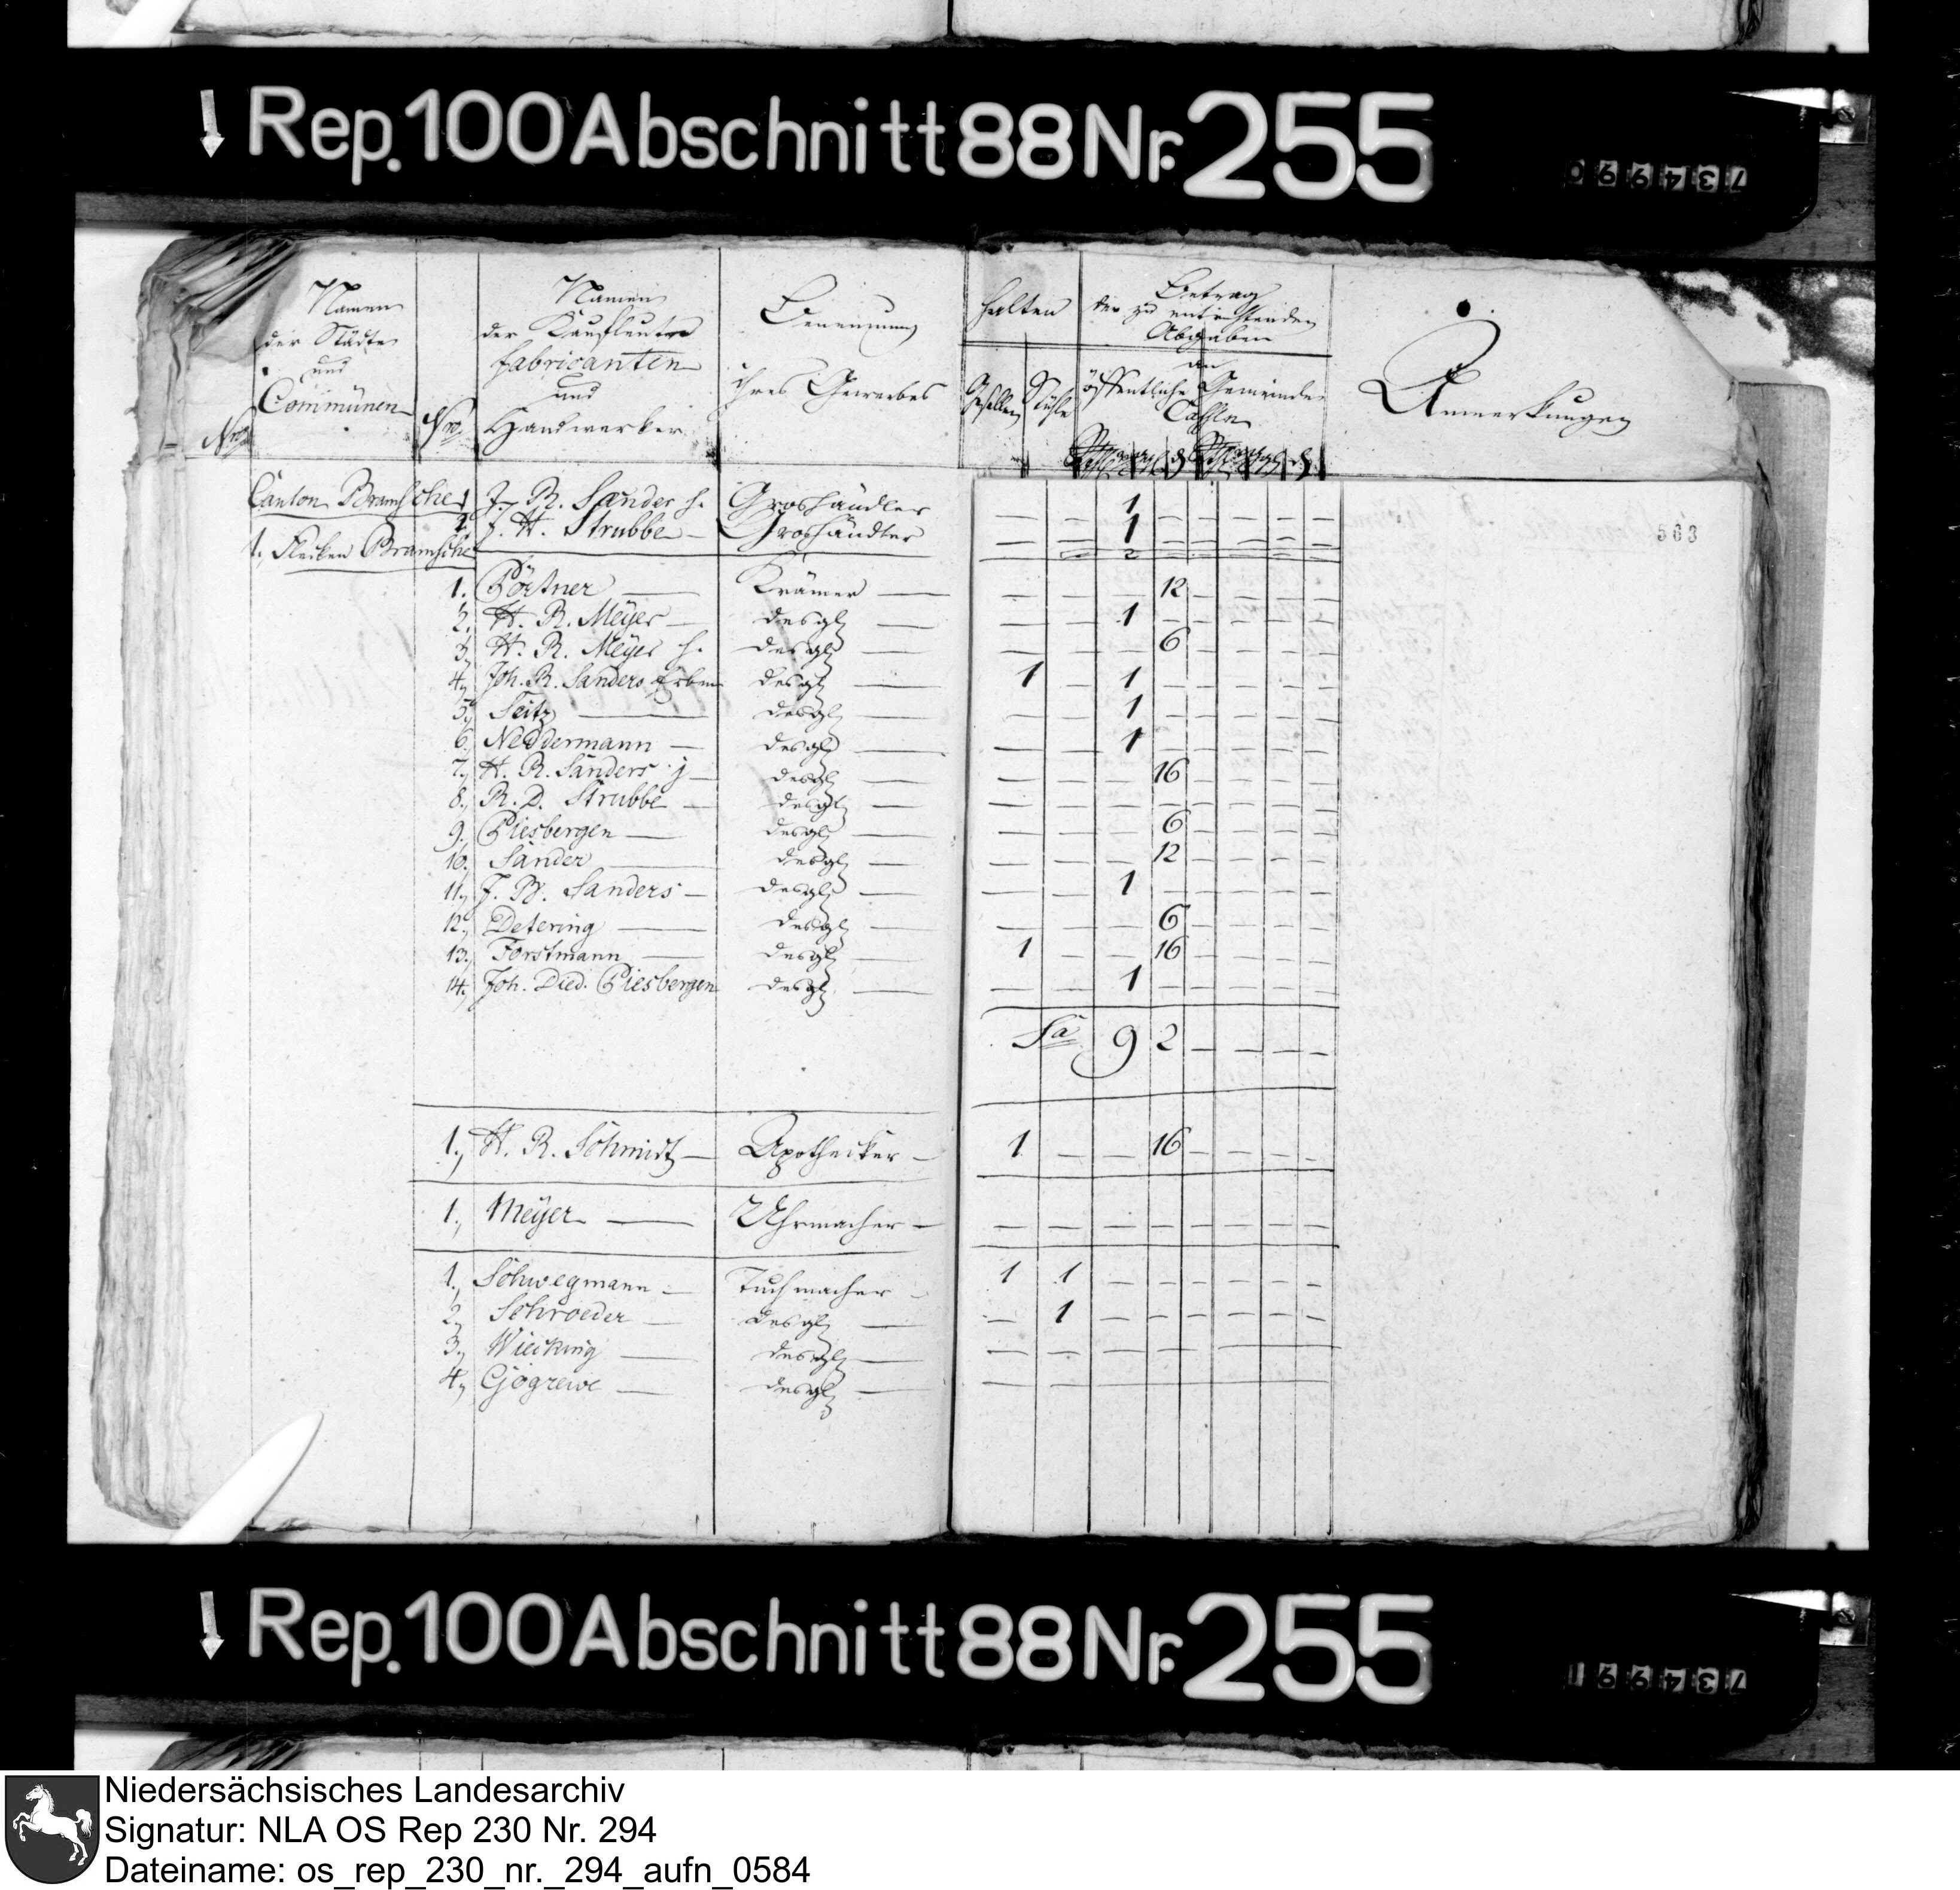 Rep. 100 Abschnitt 88 Nr. 255
734990
Namen der Städte und Communen
Nro
Namen der Kaufleute fabricanten und Handwerker
Benennung ihres Gewerbes
halten
Gesellen Stühle
Betrag der zu entrichtenden Abgaben
an
öffentliche Gemeinde Cassen
Anmerkungen
563
Canton Bramsche 1 J. R. Sander s. Groshändler — — 1 — — — — —
1. Flecken Bramsche 2 J. H. Strubbe — Groshändler — — 1 — — — — —
2
1. Pörtner — Krämer — — — — 12 — — — —
2. H. R. Meÿer — desgl — — — 1 — — — — —
3. H. R. Meÿer s. desgl — — — — 6 — — — —
4. Joh. R. Sanders Erben desgl — 1 — 1 — — — — —
5. Seitz — desgl — — — 1 — — — — —
6. Neddermann — desgl — — — 1 — — — — —
7. H. R. Sanders j — desgl — — — — 16 — — — —
8. R. D. Strubbe — desgl — — — — — — — — —
9. Piesbergen — desgl — — — — 6 — — — —
10. Sander — desgl — — — — 12 — — — —
11. J. W. Sanders — desgl — — — 1 — — — — —
12. Detering — desgl — — — — 6 — — — —
13. Forstmann — desgl — 1 — — 16 — — — —
14. Joh. Died. Piesbergen desgl — — — 1 — — — — —
Sa 9 2 — — — —
1. H. R. Schmidt — Apothecker — 1 — — 16 — — — —
1. Meÿer — Uhrmacher — — — — — — — — —
1. Schwegmann — Tuchmacher — 1 1 — — — — — —
2. Schroeder — desgl — — 1 — — — — — —
3. Wiecking — desgl — — — — — — — — —
4. Gögrewe — desgl — — — — — — — — —
Rep. 100 Abschnitt 88 Nr. 255
734991
Niedersächsisches Landesarchiv
Signatur: NLA OS Rep 230 Nr. 294
Dateiname: os_rep_230_nr._294_aufn_0584